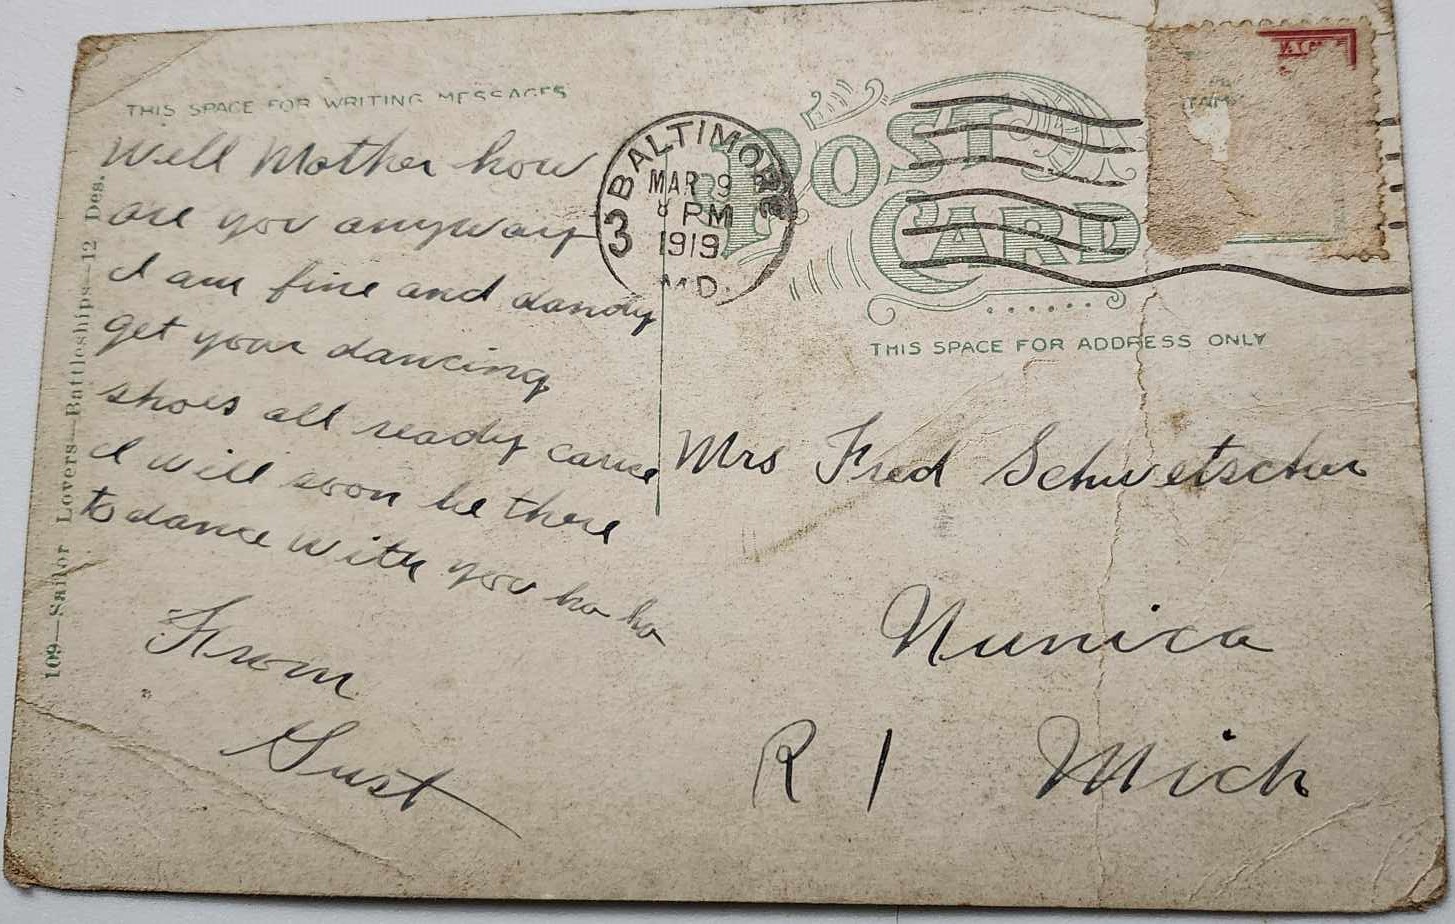 THIS SPACE FOR WRITING MESSAGES
Well Mother how
are you anyway
I am fine and dandy
get your dancing
shoes all ready cause
I will soon be there
to dance with you ha ha
From
Gust
109—Sailor Lovers—Battleships—12 Des.
BALTIMORE
MAR 9
8 PM
1919
MD.
3
POST
CARD
THIS SPACE FOR ADDRESS ONLY
Mrs Fred Schwetscher
Nunica
R 1 Mich